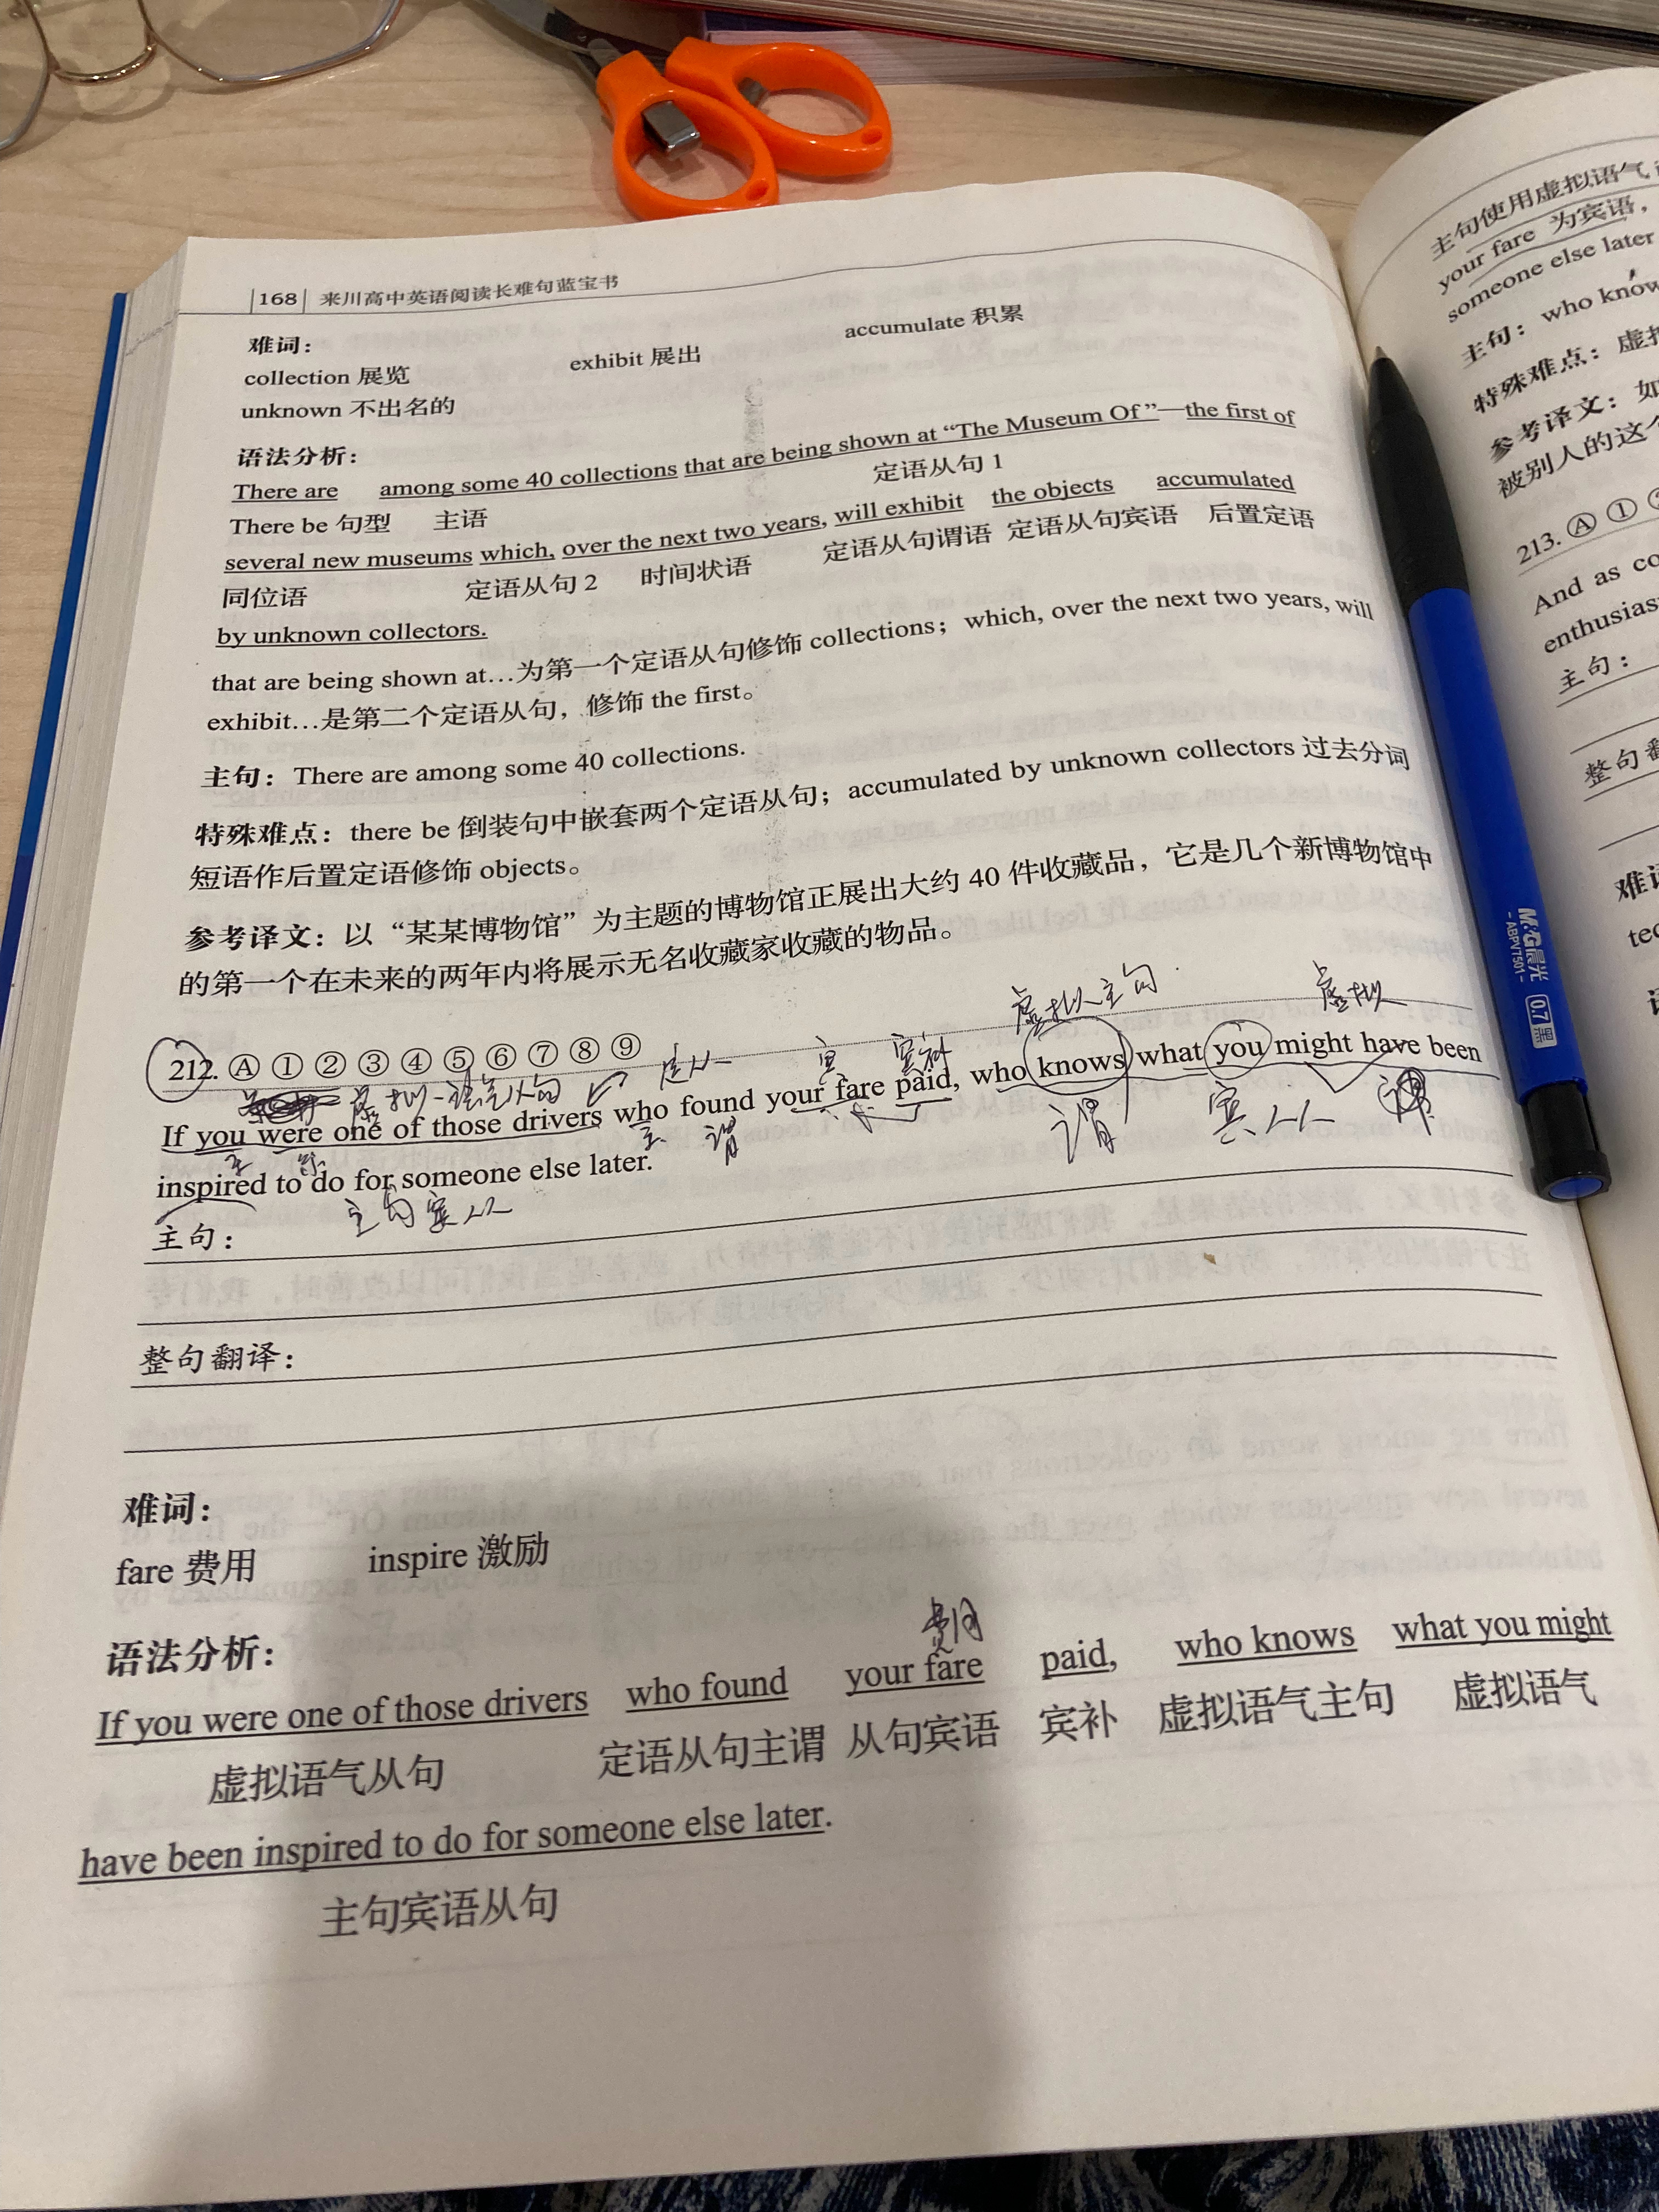 168 来川高中英语阅读长难句蓝宝书
难词：
collection 展览 exhibit 展出 accumulate 积累
unknown 不出名的
语法分析：
There are among some 40 collections that are being shown at “The Museum Of”—the first of
There be 句型 主语 定语从句 1
several new museums which, over the next two years, will exhibit the objects accumulated
同位语 定语从句 2 时间状语 定语从句谓语 定语从句宾语 后置定语
by unknown collectors.
that are being shown at…为第一个定语从句修饰 collections；which, over the next two years, will
exhibit…是第二个定语从句，修饰 the first。
主句：There are among some 40 collections.
特殊难点：there be 倒装句中嵌套两个定语从句；accumulated by unknown collectors 过去分词
短语作后置定语修饰 objects。
参考译文：以“某某博物馆”为主题的博物馆正展出大约 40 件收藏品，它是几个新博物馆中
的第一个在未来的两年内将展示无名收藏家收藏的物品。
虚拟主句 虚拟
212. Ⓐ ① ② ③ ④ ⑤ ⑥ ⑦ ⑧ ⑨
虚拟语气从句 定从 宾 宾补
If you were one of those drivers who found your fare paid, who knows what you might have been
主 系 主 谓 谓 宾从 谓
inspired to do for someone else later.
主句宾从
主句：
整句翻译：
难词：
fare 费用 inspire 激励
语法分析：
费用
If you were one of those drivers who found your fare paid, who knows what you might
虚拟语气从句 定语从句主谓 从句宾语 宾补 虚拟语气主句 虚拟语气
have been inspired to do for someone else later.
主句宾语从句
主句使用虚拟语气
your fare 为宾语，
someone else later
主句：who know
特殊难点：虚拟
参考译文：如
被别人的这个
213. Ⓐ ①
And as co
enthusias
主句：
整句翻
难词
tec
M&G晨光
ABPV7501
0.7 黑